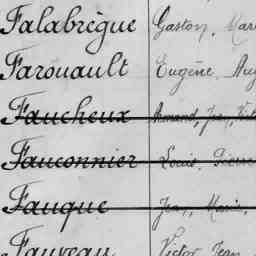 Falabrègue Gaston, Mar
Farouault Eugène, Aug
Faucheux Armand, Jean, Vict
Fauconnier Louis, Pierre
Fauque Jean, Marie,
Fauveau Victor, Jean